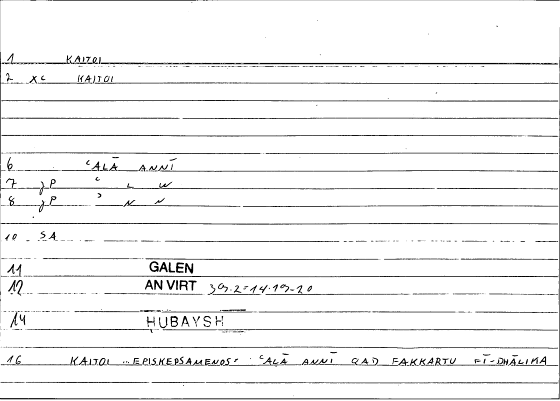 1 KAITOI
2 xc KAITOI
6 ʿALĀ ANNĪ
7 jP ʿ L W
8 jP ʾ N N
10 SA
11 GALEN
12 AN VIRT 39.2=14.19-20
14 HUBAYSH
16 KAITOI ..EPISKEPSAMENOS. ʿALĀ ANNĪ QAD FAKKARTU FĪ-DHĀLIKA